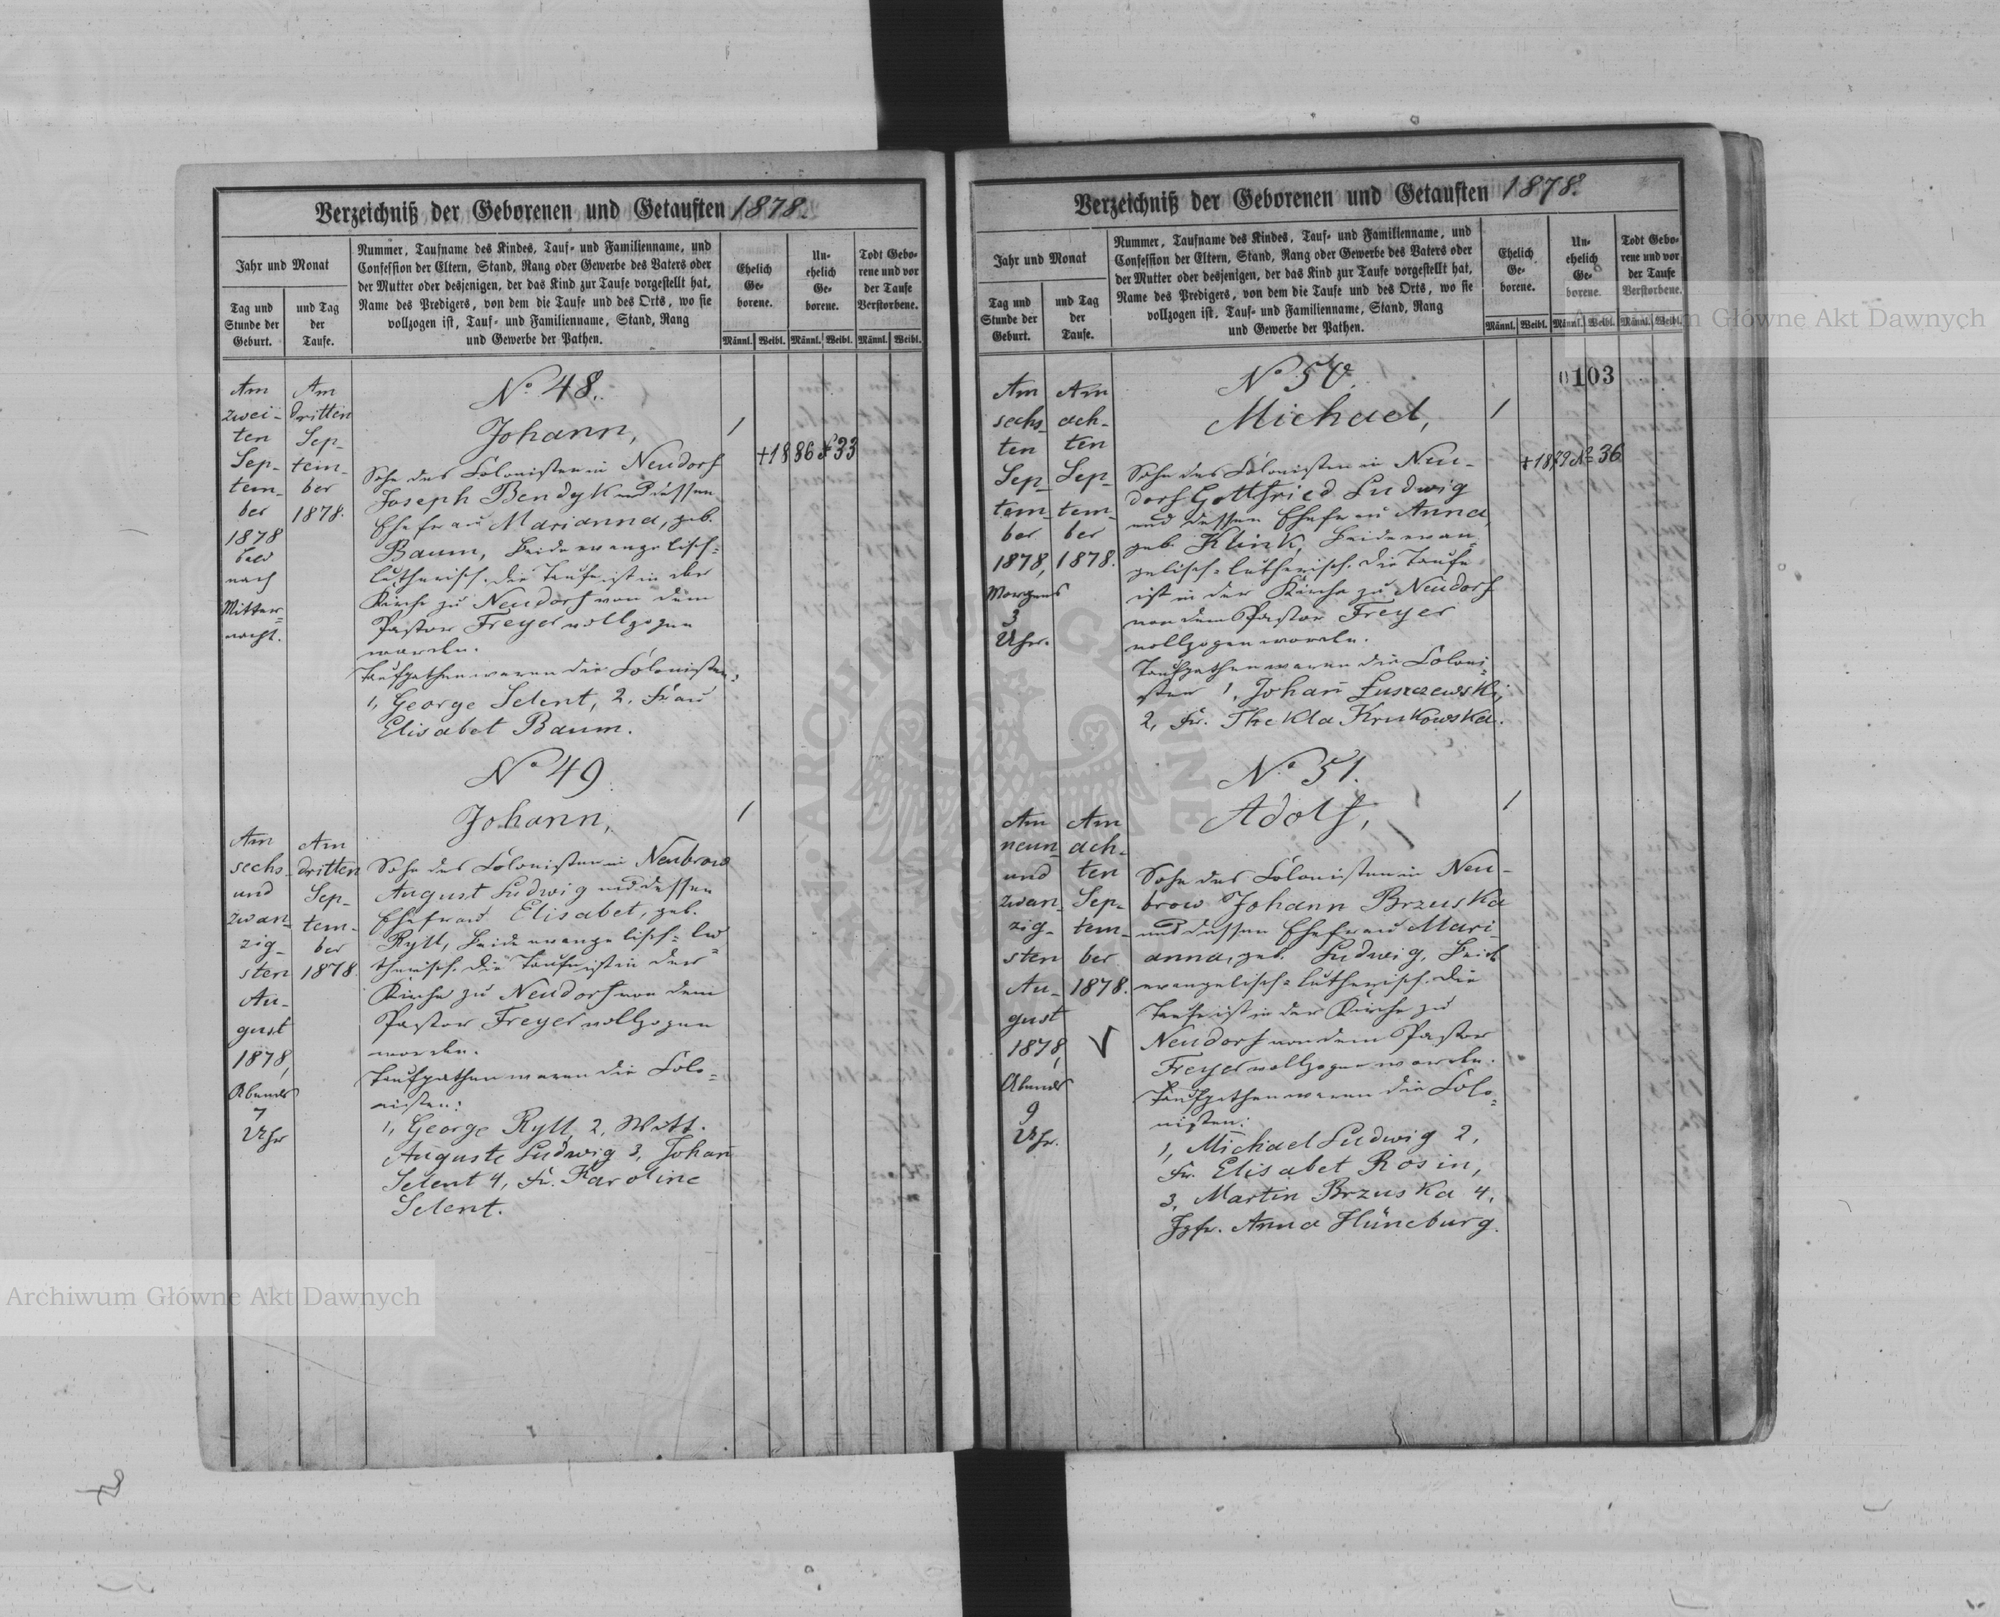 Verzeichniß der Geborenen und Getauften 1878.
Jahr und Monat
Tag und
Stunde der
Geburt.
und Tag
der
Taufe.
Nummer, Taufname des Kindes, Tauf- und Familienname, und
Confession der Eltern, Stand, Rang oder Gewerbe des Vaters oder
der Mutter oder desjenigen, der das Kind zur Taufe vorgestellt hat,
Name des Predigers, von dem die Taufe und des Orts, wo sie
vollzogen ist, Tauf- und Familienname, Stand, Rang
und Gewerbe der Pathen.
Ehelich
Ge-
borene.
Un-
ehelich
Ge-
borene.
Todt Gebo-
rene und vor
der Taufe
Verstorbene.
Männl. Weibl. Männl. Weibl. Männl. Weibl.
Am
zwei-
ten
Sep-
tem-
ber
1878
bald
nach
Mitter-
nacht.
Am
dritten
Sep-
tem-
ber
1878.
No 48.
Johann,
Sohn des Colonisten in Neudorf
Joseph Bendyk und dessen
Ehefrau Marianna, geb.
Baum, beide evangelisch-
lutherisch. Die Taufe ist in der
Kirche zu Neudorf von dem
Pastor Freyer vollzogen
worden.
Taufpathen waren die Colonisten:
1, George Selent, 2. Frau
Elisabet Baum.
1
+1886 № 33
No 49.
Johann,
1
Am
sechs-
und
zwan-
zig-
sten
Au-
gust
1878,
Abends
7
Uhr
Am
dritten
Sep-
tem-
ber
1878.
Sohn des Colonisten in Neubrow
August Ludwig und dessen
Ehefrau Elisabet, geb.
Rytt, beide evangelisch-lu-
therisch. Die Taufe ist in der
Kirche zu Neudorf von dem
Pastor Freyer vollzogen
worden.
Taufpathen waren die Colo-
nisten:
1, George Rytt, 2, Wittt.
Auguste Ludwig 3, Johan̄
Selent 4, Fr. Karoline
Selent.
Verzeichniß der Geborenen und Getauften 1878.
Jahr und Monat
Tag und
Stunde der
Geburt.
und Tag
der
Taufe.
Nummer, Taufname des Kindes, Tauf- und Familienname, und
Confession der Eltern, Stand, Rang oder Gewerbe des Vaters oder
der Mutter oder desjenigen, der das Kind zur Taufe vorgestellt hat,
Name des Predigers, von dem die Taufe und des Orts, wo sie
vollzogen ist, Tauf- und Familienname, Stand, Rang
und Gewerbe der Pathen.
Ehelich
Ge-
borene.
Un-
ehelich
Ge-
borene.
Todt Gebo-
rene und vor
der Taufe
Verstorbene.
Männl. Weibl. Männl. Weibl. Männl. Weibl.
0103
Am
sechs-
ten
Sep-
tem-
ber
1878,
Morgens
3
Uhr.
Am
ach-
ten
Sep-
tem-
ber
1878.
No 50.
Michael,
Sohn des Colonisten in Neu-
dorf Gottfried Ludwig
und dessen Ehefrau Anna,
geb. Klink, beide evan-
gelisch-lutherisch. Die Taufe
ist in der Kirche zu Neudorf
von dem Pastor Freyer
vollzogen worden.
Taufpathen waren die Coloni-
sten 1, Johan̄ Łuszczewski,
2, Fr. Thekla Krukowska.
1
+1879 № 36
No 51.
Adolf,
1
Am
neun-
und
zwan-
zig-
sten
Au-
gust
1878,
Abends
9
Uhr.
Am
ach-
ten
Sep-
tem-
ber
1878.
Sohn des Colonisten in Neu-
brow Johann Brzuska
und dessen Ehefrau Mari-
anna, geb. Ludwig, beide
evangelisch-lutherisch. Die
Taufe ist in der Kirche zu
Neudorf von dem Pastor
Freyer vollzogen worden.
Taufpathen waren die Colo-
nisten:
1, Michael Ludwig 2,
Fr. Elisabet Rosin,
3, Martin Brzuska 4.
Jgfr. Anna Hüneburg.
Archiwum Główne Akt Dawnych
Archiwum Główne Akt Dawnych